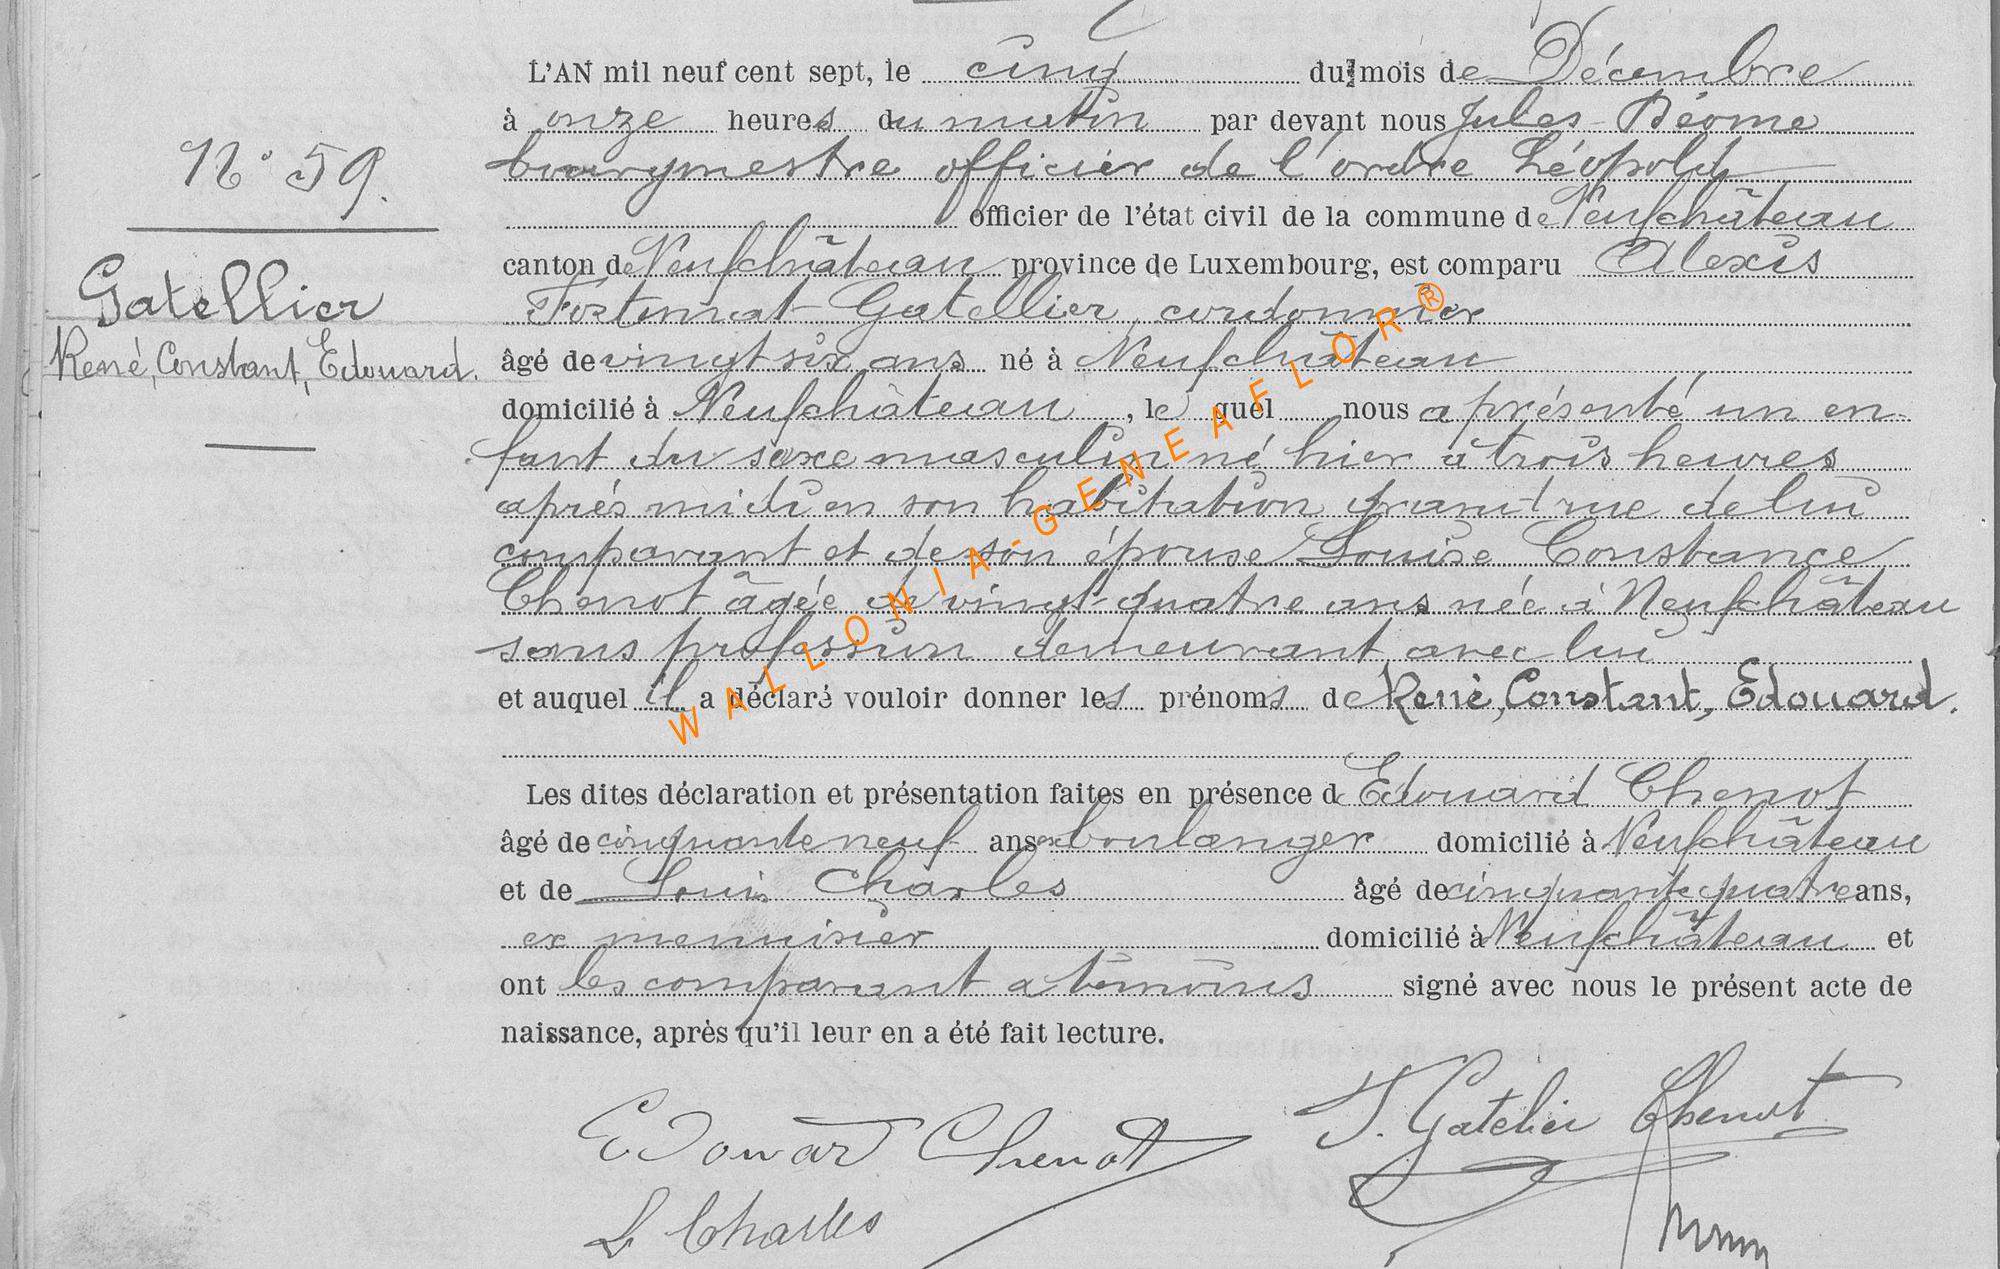 L'AN mil neuf cent sept, le cinq du mois de Décembre
à onze heures du matin par devant nous Jules
bourgmestre officier de l'ordre Léopold
officier de l'état civil de la commune de Neufchâteau
N° 59.
canton de Neufchâteau province de Luxembourg, est comparu Alexis
Gatellier
Fortunat Gatellier, cordonnier
René, Constant, Edouard.
âgé de vingt six ans né à Neufchâteau
domicilié à Neufchâteau, lequel nous a présenté un en-
fant du sexe masculin né hier à trois heures
après midi en son habitation grand rue de lui
comparant et de son épouse Louise Constance
Chenot âgée de vingt-quatre ans née à Neufchâteau
sans profession demeurant avec lui
et auquel il a déclaré vouloir donner les prénoms de René, Constant, Edouard.
Les dites déclaration et présentation faites en présence d Edouard Chenot
âgé de cinquante neuf ans boulanger domicilié à Neufchâteau
et de Louis Charles âgé de cinquante quatre ans,
ex menuisier domicilié à Neufchâteau et
ont les comparant a témoins signé avec nous le présent acte de
naissance, après qu'il leur en a été fait lecture.
Edouard Chenot
Gatelier Chenot
L Charles
WALLONIA-GENEAFLOR®